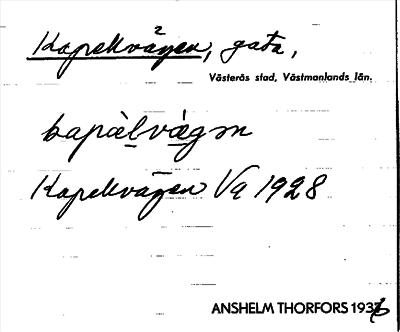 Kapellvägen, gata,
Västerås stad, Västmanlands län.
kapèlvä́gən
Kapellvägen Va 1928
ANSHELM THORFORS 1936